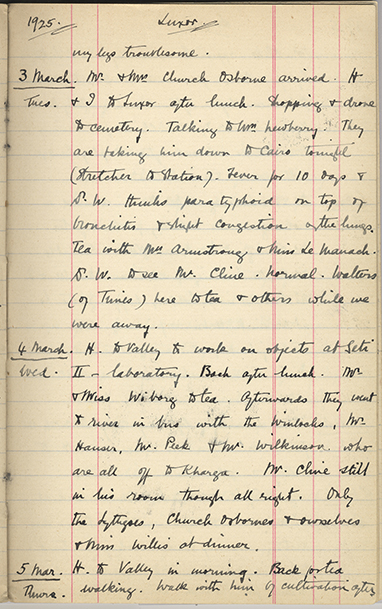 1925. Luxor.
my legs troublesome.
3 March. Mr. & Mrs Church Osborne arrived. H
Tues. & I to Luxor after lunch. Shopping & drove
to cemetery. Talking to Mrs Newberry. They
are taking him down to Cairo tonight
(stretcher to station). Fever for 10 days &
D. W. thinks paratyphoid on top of
bronchitis & slight congestion of the lungs.
Tea with Mrs Armstrong & Miss Le Manach.
D. W. to see Mr. Cline. Normal. Walters
(of Times) here to tea & others while we
were away.
4 March. H. to Valley to work on objects at Seti
Wed. II - laboratory. Back after lunch. Mr
& Miss Wiborg to tea. Afterwards they went
to river in bus with the Winlocks, Mr
Hauser, Mr. Peek & Mr. Wilkinson. who
are all off to Kharga. Mr. Cline still
in his room though all right. Only
the Lythgoes, Church Osbornes & ourselves
& Miss Willis at dinner.
5 Mar. H. to Valley in morning. Back for tea
Thurs. walking. Walk with him by cultivation after